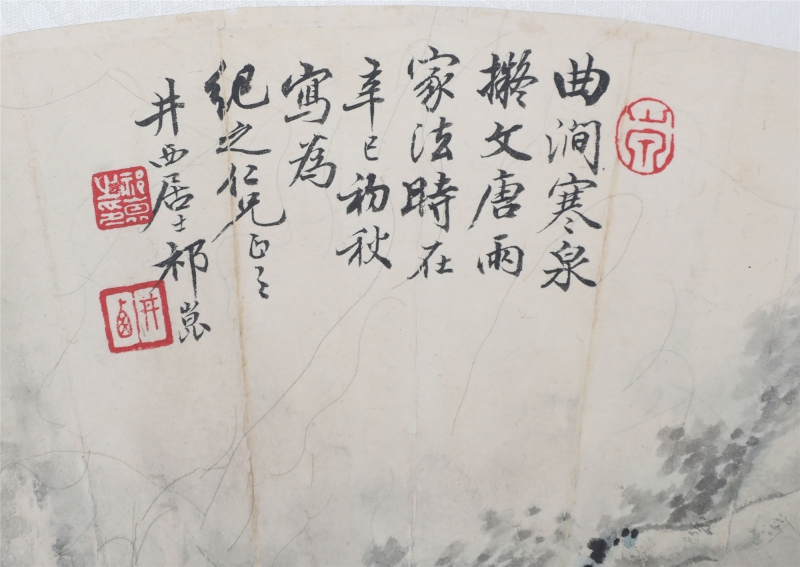 曲澗寒泉
擬文唐兩
家法時在
辛巳初秋
寫為
紀之仁兄正之
井西居士祁崑
祁崑之印
井西